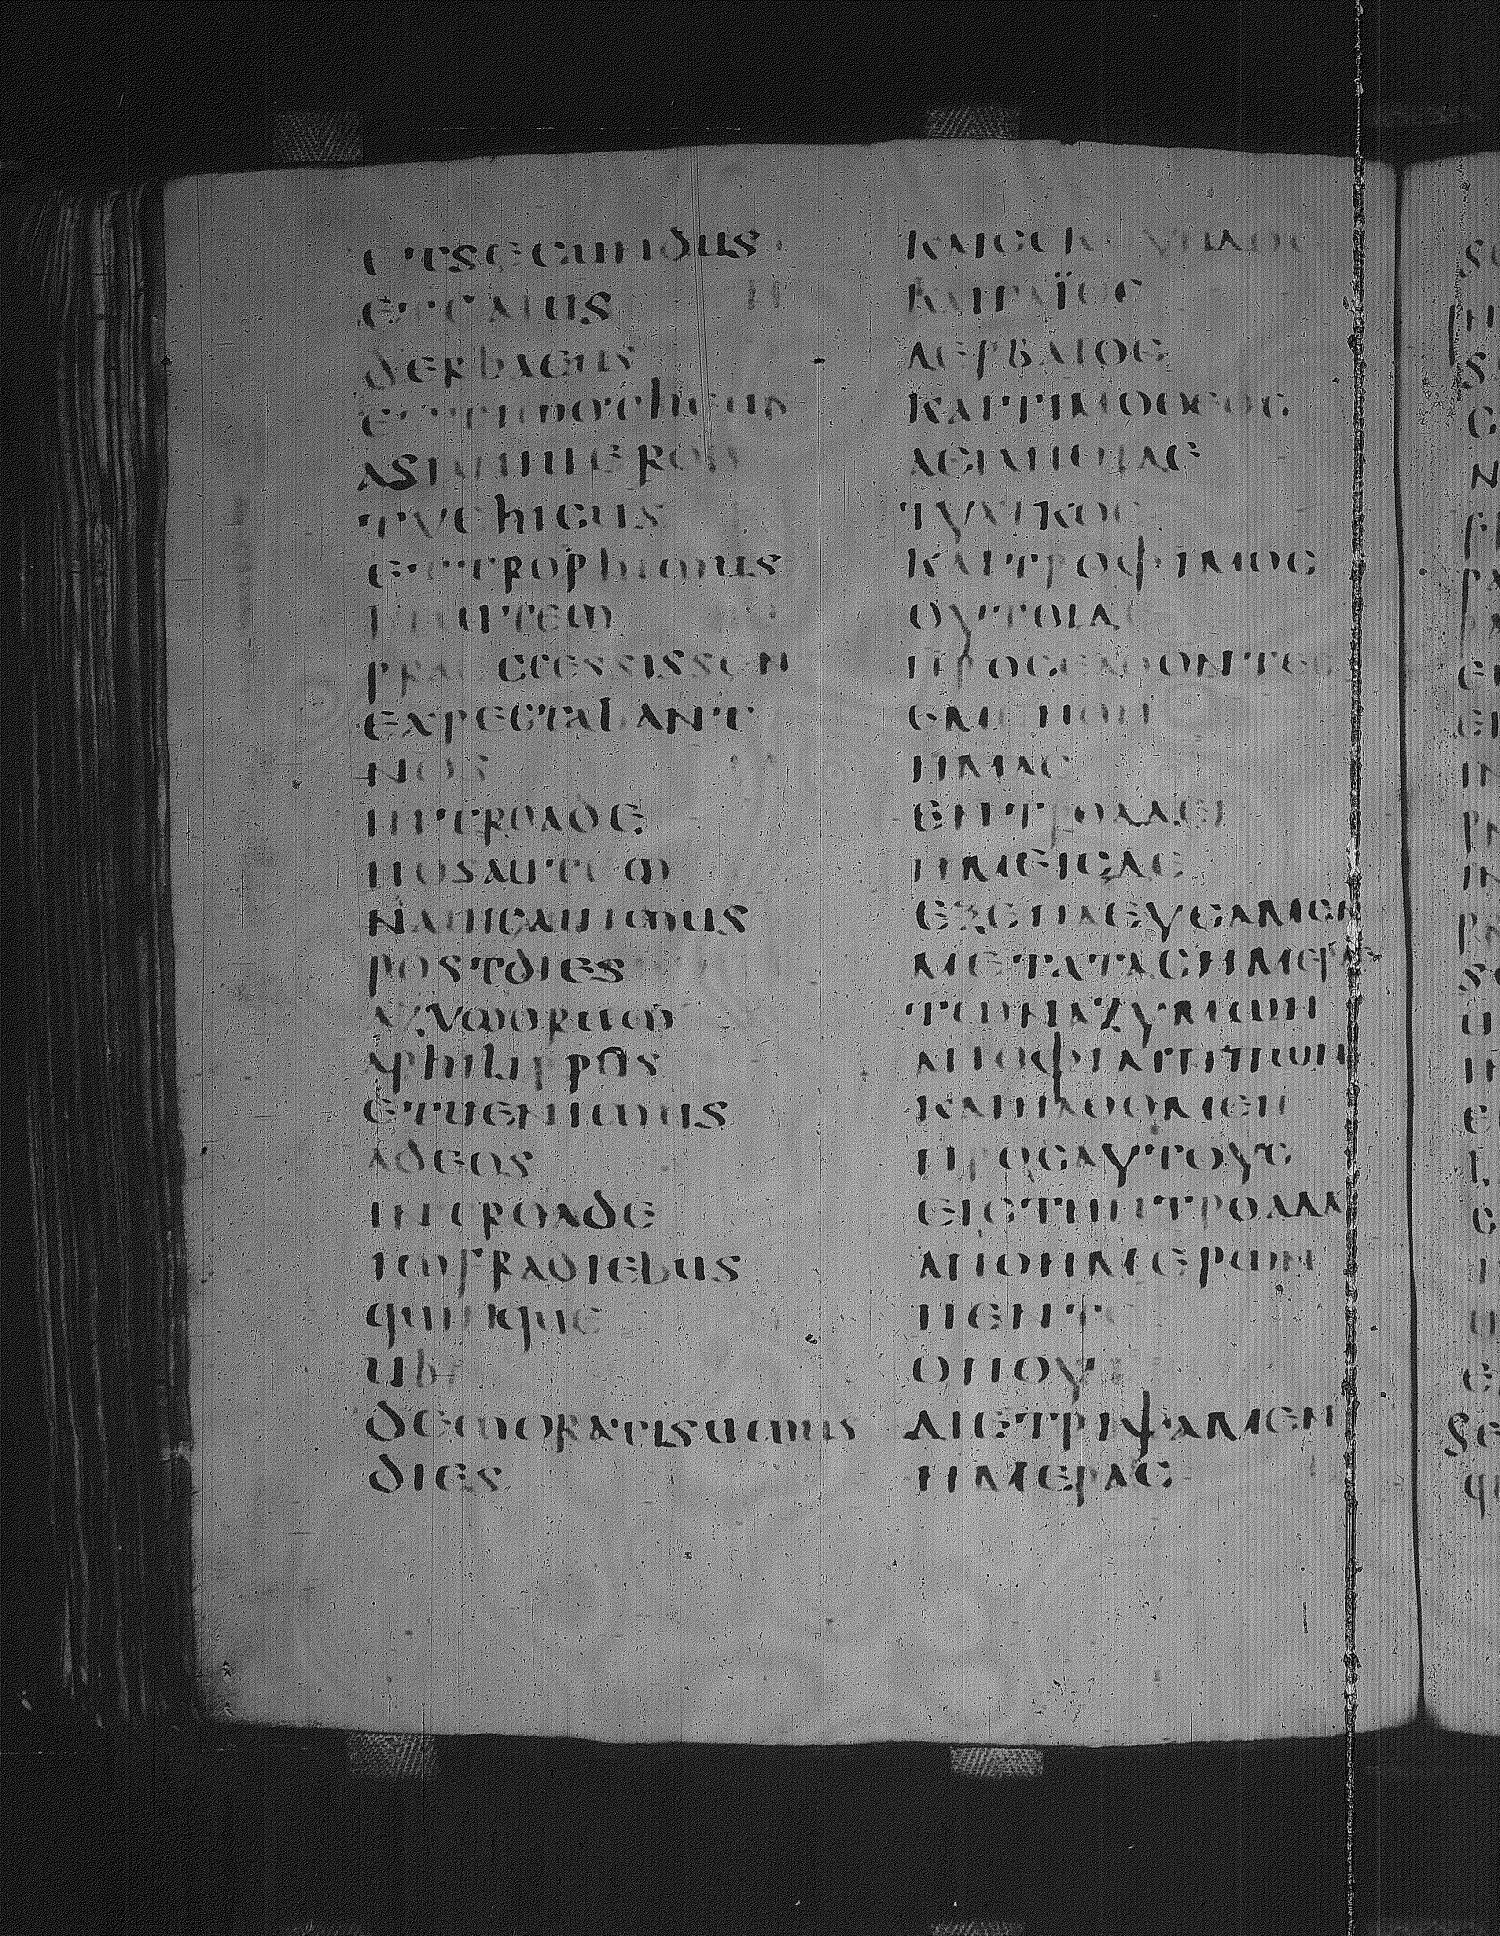 etsecundus
etcaius
derbaeus
ettimotheus
asianiuero
tychicus
ettrophimus
hiiautem
praecessissen
expectabant
nos
introade
nosautem
nauigauimus
postdies
azymorum
aphilippos
etuenimus
adeos
introade
infradiebus
quinque
ubi
demoratisumus
dies
ΚΑΙΣΕΚΟΥΝΔΟΣ
ΚΑΙΓΑΪΟΣ
ΔΕΡΒΑΙΟΣ
ΚΑΙΤΙΜΟΘΕΟΣ
ΑΣΙΑΝΟΙΔΕ
ΤΥΧΙΚΟΣ
ΚΑΙΤΡΟΦΙΜΟΣ
ΟΥΤΟΙΔΕ
ΠΡΟΣΕΛΘΟΝΤΕΣ
ΕΜΕΝΟΝ
ΗΜΑΣ
ΕΝΤΡΟΑΔΕΙ
ΗΜΕΙΣΔΕ
ΕΞΕΠΛΕΥΣΑΜΕΝ
ΜΕΤΑΤΑΣΗΜΕΡΑΣ
ΤΩΝΑΖΥΜΩΝ
ΑΠΟΦΙΛΙΠΠΩΝ
ΚΑΙΗΛΘΟΜΕΝ
ΠΡΟΣΑΥΤΟΥΣ
ΕΙΣΤΗΝΤΡΟΑΔΑ
ΑΠΟΗΜΕΡΩΝ
ΠΕΝΤΕ
ΟΠΟΥ
ΔΙΕΤΡΙΨΑΜΕΝ
ΗΜΕΡΑΣ